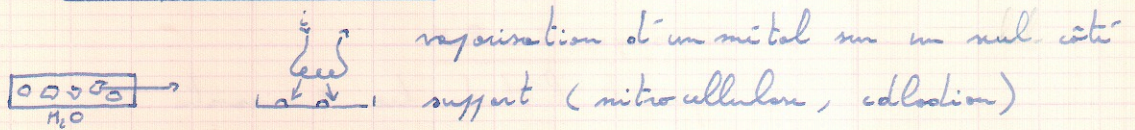 vaporisation d'un métal sur un seul côté
support (nitrocellulose, collodion)
H₂O